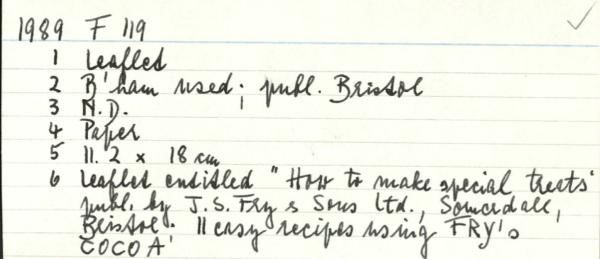 1989 F 119
1 Leaflet
2 B'ham used; publ. Bristol
3 N.D.
4 Paper
5 11.2 x 18 cm
6 Leaflet entitled "How to make special treats'
publ. by J.S. Fry & Sons Ltd., Somerdale,
Bristol. 11 easy recipes using FRY's
COCOA'